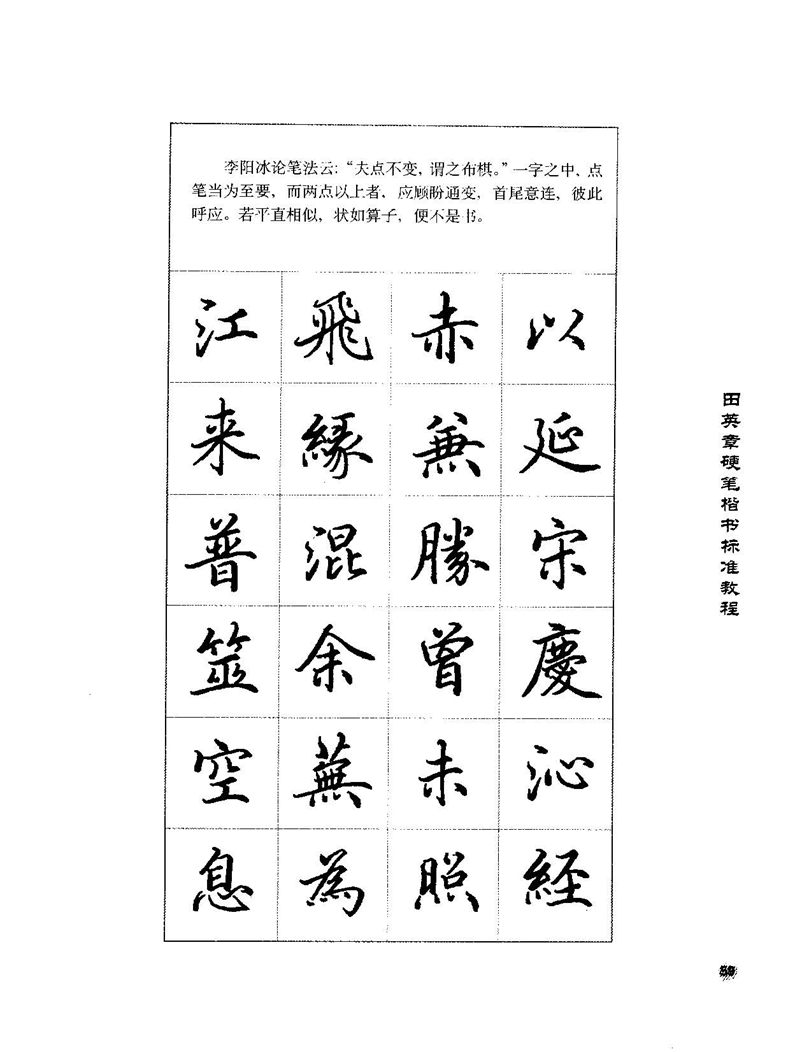 李阳冰论笔法云：“夫点不变，谓之布棋。”一字之中、点
笔当为至要，而两点以上者，应顾盼通变，首尾意连，彼此
呼应。若平直相似，状如算子，便不是书。
江 飛 赤 以
来 緣 兼 延
普 混 勝 宋
筮 余 曾 慶
空 蕪 未 沁
息 為 照 經
田英章硬笔楷书标准教程